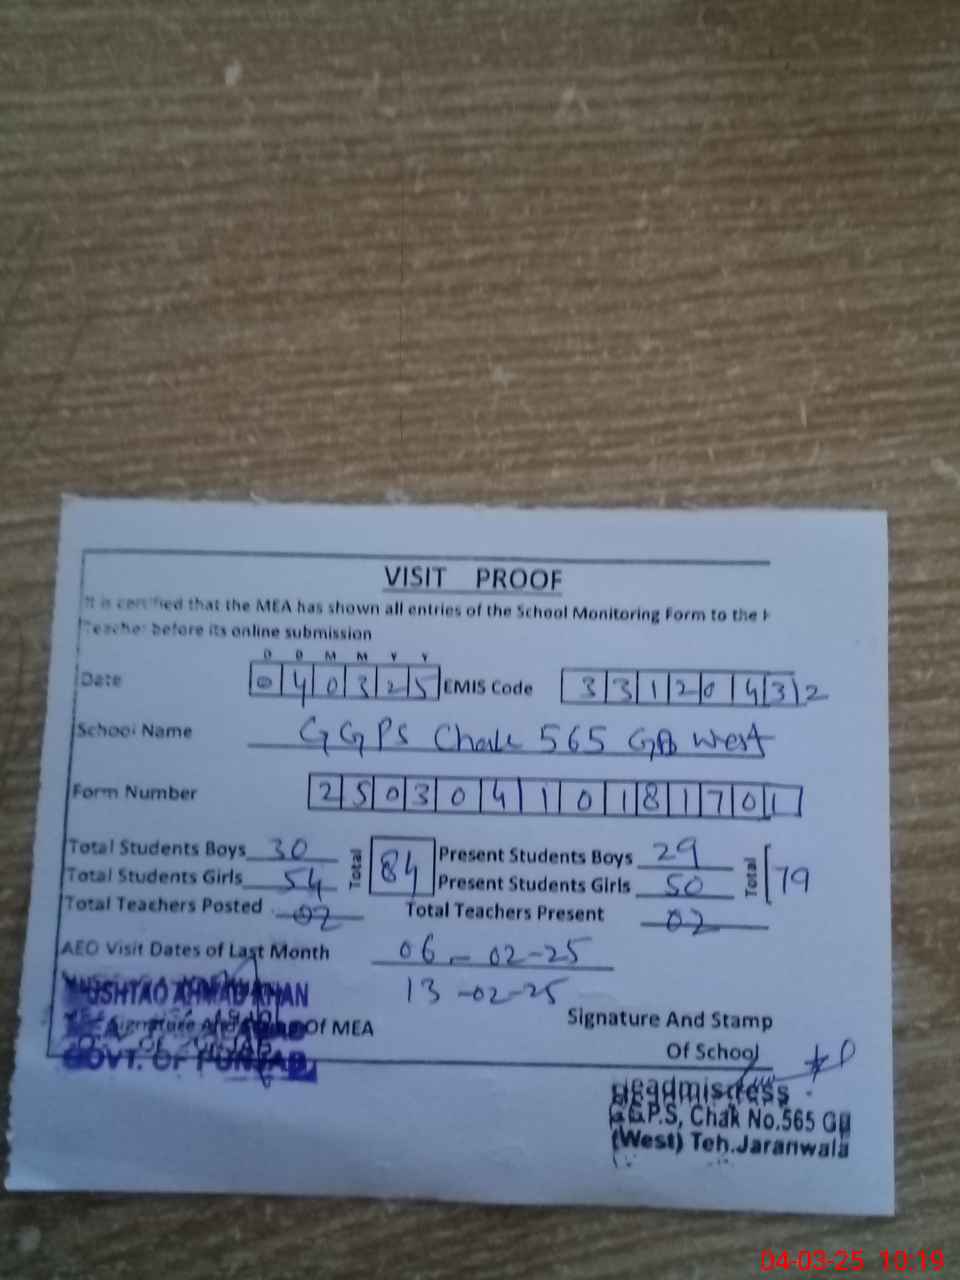 VISIT PROOF
It is certified that the MEA has shown all entries of the School Monitoring Form to the H
Teacher before its online submission
D D M M Y Y
Date 040325 EMIS Code 33120432
School Name GGPS Chak 565 GB West
Form Number 250304110181701
Total Students Boys 30 Total 84 Present Students Boys 29 Total 79
Total Students Girls 54 Present Students Girls 50
Total Teachers Posted 02 Total Teachers Present 02
AEO Visit Dates of Last Month 06-02-25
13-02-25
MUSHTAQ AHMAD KHAN
Signature And Of MEA
GOVT. OF PUNJAB
Signature And Stamp
Of School
Headmistress
G.G.P.S, Chak No.565 GB
(West) Teh.Jaranwala
04-03-25 10:19